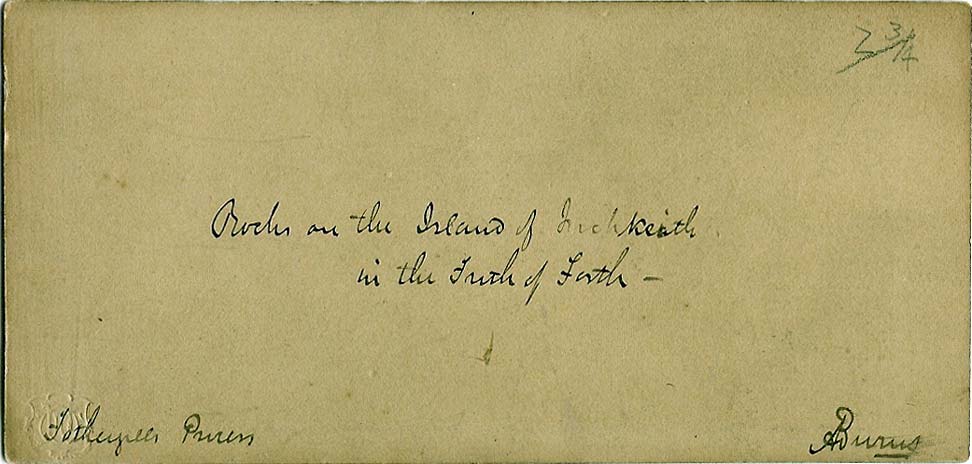 2 3/4
Rocks on the Island of Inchkeith
in the Frith of Forth —
Burns